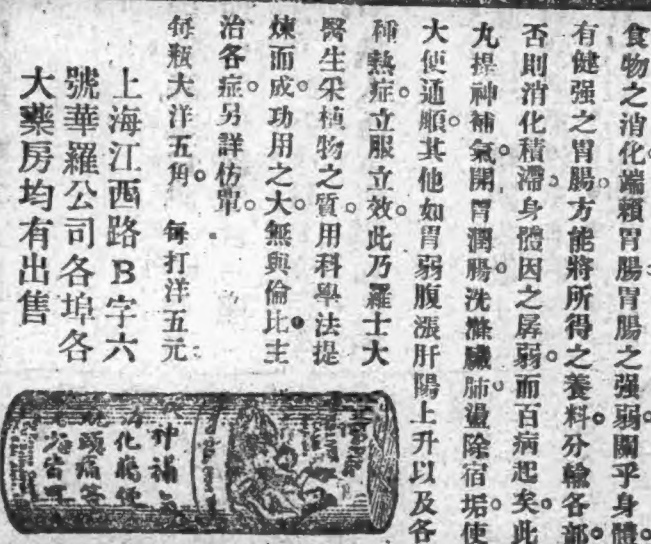 食物之消化端賴胃腸胃腸之强弱關乎身體。
有健强之胃腸。方能將所得之養料。分輸各部。
否則消化積滯。身體因之孱弱。而百病起矣。此
丸提神補氣。開胃潤腸。洗滌臟肺。盪除宿垢。使
大便通順。其他如胃弱腹漲肝陽上升以及各
種熱症。立服立效。此乃羅士大
醫生采植物之質。用科學法提
煉而成。功用之大。無與倫比。主
治各症。另詳仿單。
每瓶大洋五角。 每打洋五元
上海江西路B字六
號華羅公司各埠各
大藥房均有出售
神補
化腸
頭痛